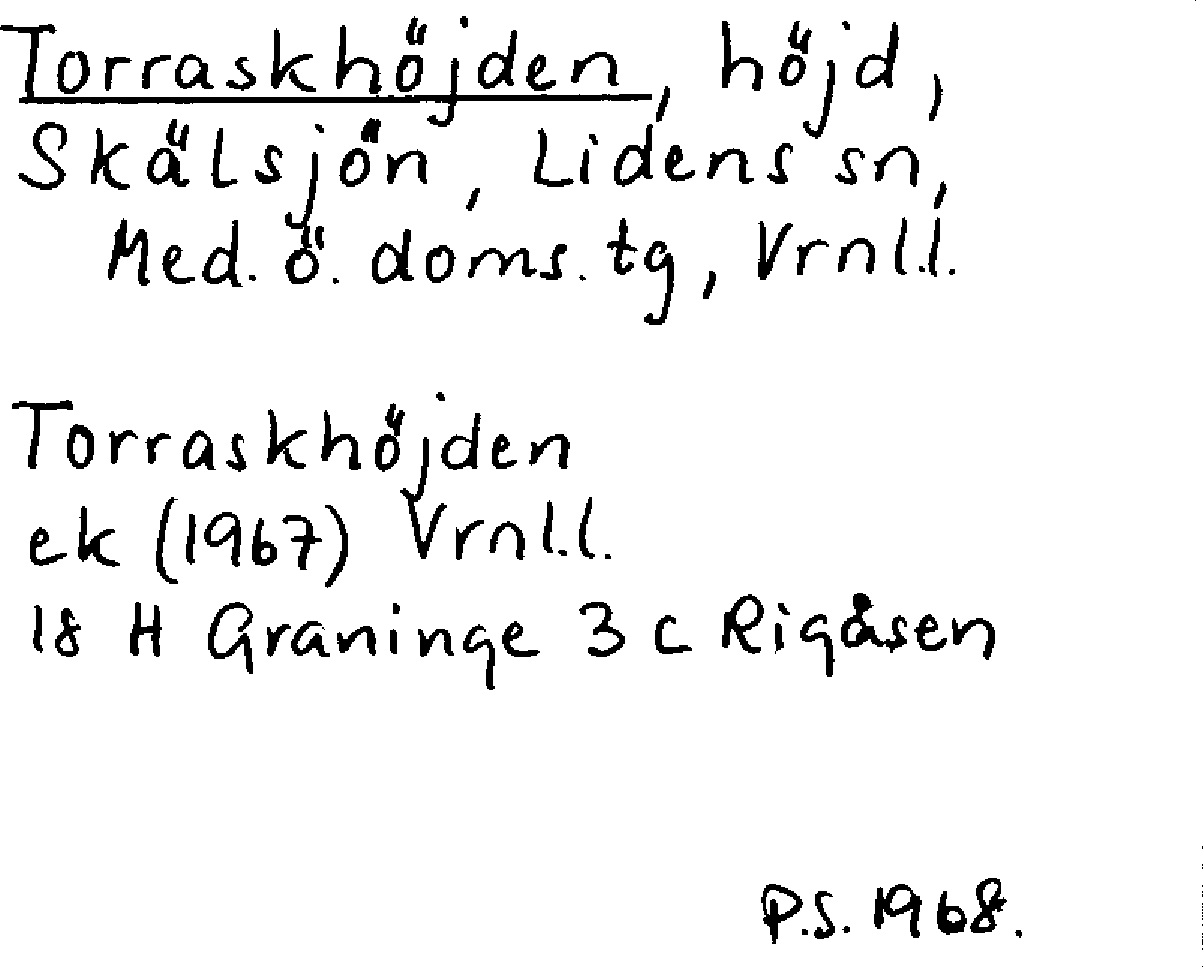 Torraskhöjden, höjd,
Skälsjön, Lidens sn,
Med. ö. doms. tg, Vrnl.l.
Torraskhöjden
ek (1967) Vrnl.l.
18 H Graninge 3 c Rigåsen
P.S. 1968.